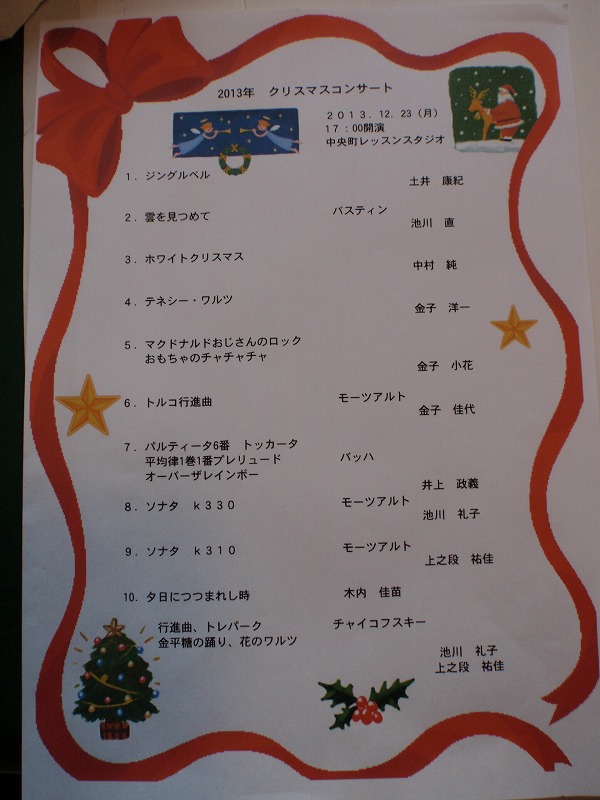 2013年　クリスマスコンサート
２０１３．12．23（月）
17：00開演
中央町レッスンスタジオ
1．ジングルベル
土井　康紀
2．雲を見つめて　バスティン
池川　直
3．ホワイトクリスマス
中村　純
4．テネシー・ワルツ
金子　洋一
5．マクドナルドおじさんのロック
おもちゃのチャチャチャ
金子　小花
6．トルコ行進曲　モーツアルト
金子　佳代
7．パルティータ6番　トッカータ
平均律1巻1番プレリュード　バッハ
オーバーザレインボー
井上　政義
8．ソナタ　ｋ３３０　モーツアルト
池川　礼子
9．ソナタ　ｋ３１０　モーツアルト
上之段　祐佳
10．夕日につつまれし時　木内　佳苗
行進曲、トレパーク　チャイコフスキー
金平糖の踊り、花のワルツ
池川　礼子
上之段　祐佳